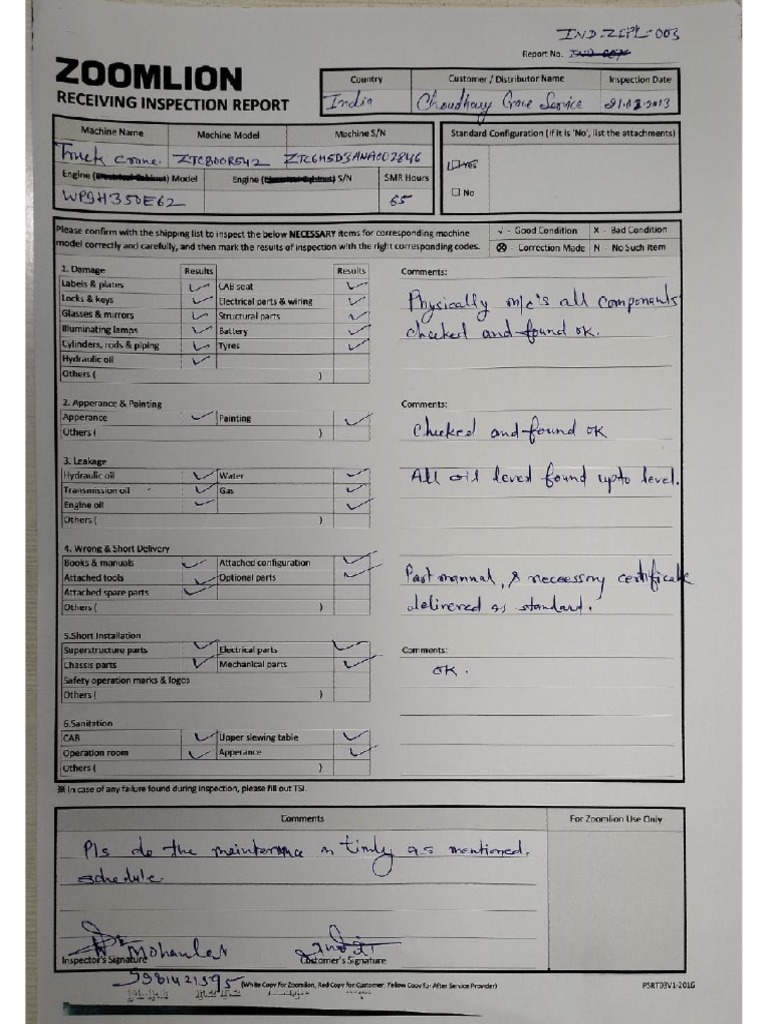 IND-ZEPL-003
Report No.
ZOOMLION
RECEIVING INSPECTION REPORT
Country Customer / Distributor Name Inspection Date
India Choudhary Crane Service
Machine Name Machine Model Machine S/N
Truck crane. ZTC800R542
Standard Configuration (if it is 'No', list the attachments)
Engine (Electrical Cabinet) Model Engine (Electrical Cabinet) S/N SMR Hours
WP9H350E62 65
☐ YES
☐ No
Please confirm with the shipping list to inspect the below NECESSARY items for corresponding machine
model correctly and carefully, and then mark the results of inspection with the right corresponding codes.
√ - Good Condition X - Bad Condition
⊗ - Correction Made N - No Such Item
1. Damage Results Results Comments:
Labels & plates ✓ CAB seat ✓
Locks & keys ✓ Electrical parts & wiring ✓
Glasses & mirrors ✓ Structural parts ✓
Illuminating lamps ✓ Battery ✓
Cylinders, rods & piping ✓ Tyres ✓
Hydraulic oil ✓
Others ( )
Physically m/c's all components
checked and found ok.
2. Apperance & Painting Comments:
Apperance ✓ Painting ✓
Others ( )
Checked and found ok
3. Leakage
Hydraulic oil ✓ Water ✓
Transmission oil ✓ Gas ✓
Engine oil ✓ ✓
Others ( )
All oil level found upto level.
4. Wrong & Short Delivery
Books & manuals ✓ Attached configuration ✓
Attached tools ✓ Optional parts ✓
Attached spare parts ✓
Others ( )
Part mannal, & necessory certificate
delivered as standard.
5.Short Installation Comments:
Superstructure parts ✓ Electrical parts ✓
Chassis parts ✓ Mechanical parts ✓
Safety operation marks & logos
Others ( )
OK.
6.Sanitation
CAB ✓ Upper slewing table ✓
Operation room ✓ Apperance ✓
Others ( )
※ In case of any failure found during inspection, please fill out TSI.
Comments For Zoomlion Use Only
Pls do the on timly as mentioned.
schedule
Mohanlal
Inspector's Signature Customer's Signature
(White Copy For Zoomlion, Red Copy for Customer, Yellow Copy for After Service Provider) PSRT03V1-2016